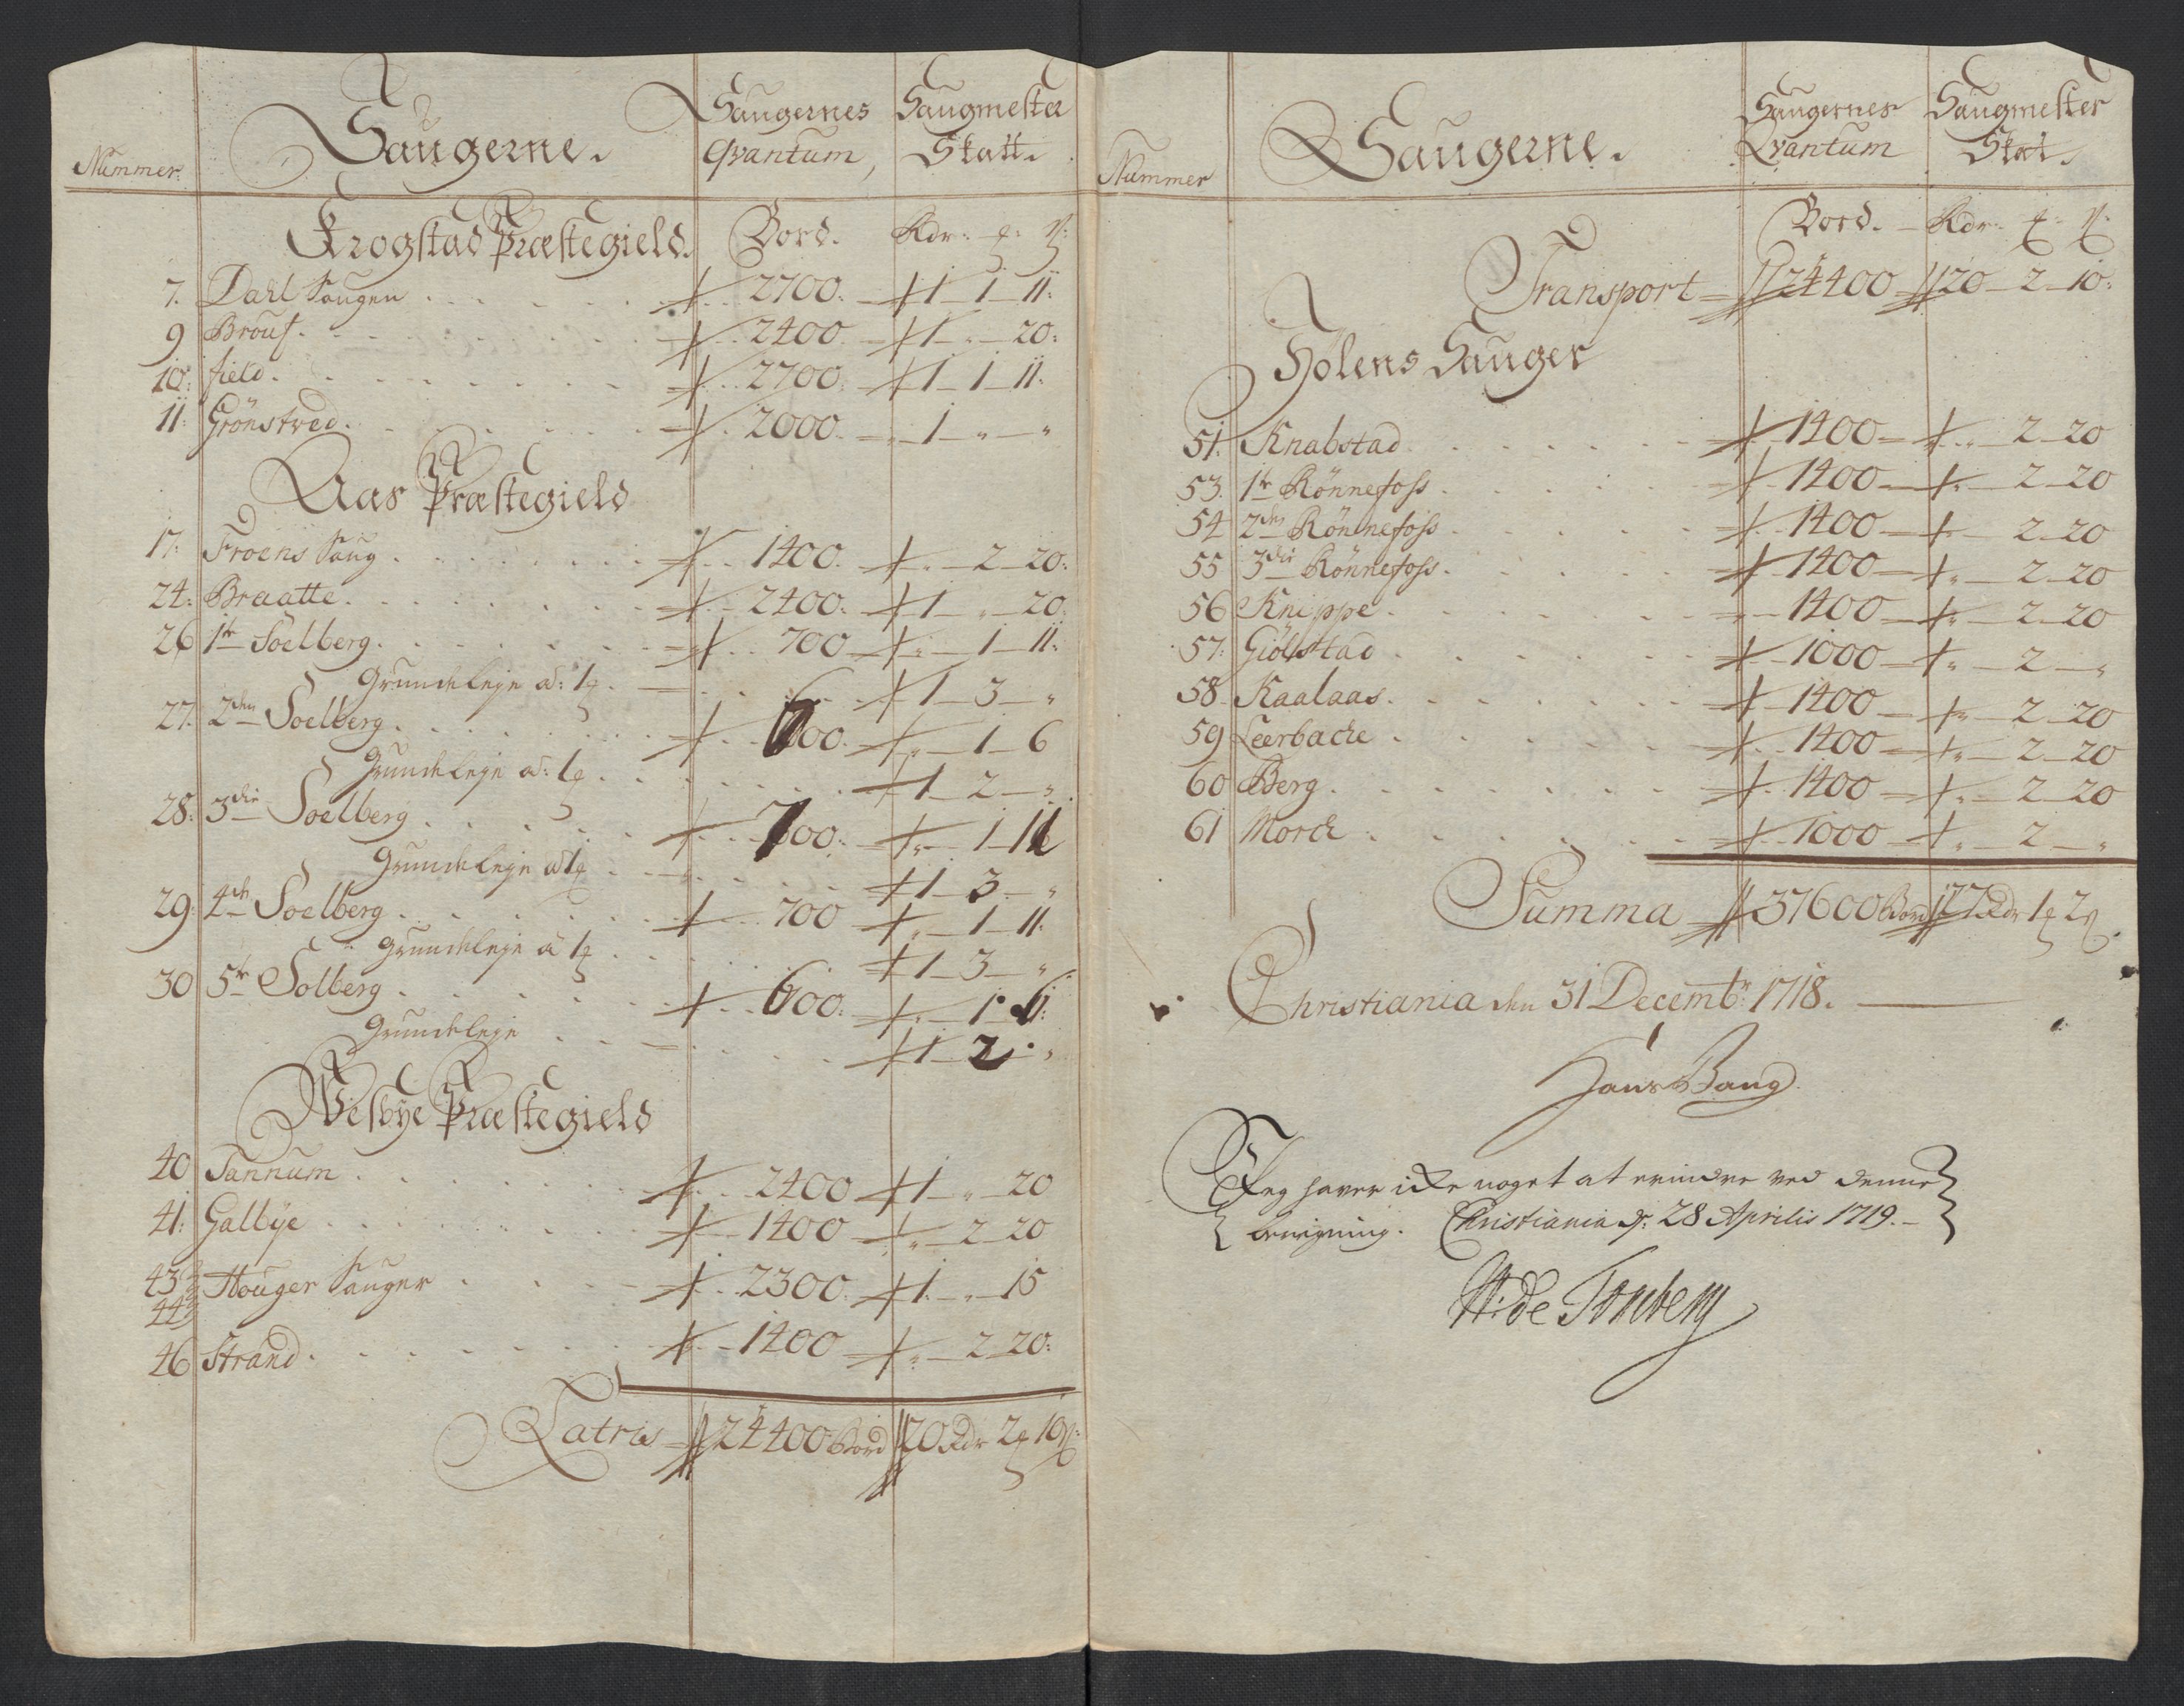 Nummer. Saugerne. Saugernes Qvantum, Saugmester Skatt.
Krogstad Præstegield. Bord. Rdr:
7. Dahl Saugen 2700. 1 1 11:
9 Brous. 2400. 1 " 20:
10: field. 2700. 1 1 11.
11: Grönstved. 2000. 1 " "
Aas Præstegield
17: Froens Saug 1400. " 2 20:
24: Braatte. 2400. 1 " 20:
26 1te Soelberg. 700 " 1 11:
Grundeleje a: 1 1 3 "
27. 2den Soelberg. 600. " 1 6
Grundeleje a: 1 1 2 "
28: 3die Soelberg 700: " 1 11
Grundeleje a 1 1 3 "
29: 4de Soelberg 700 " 1 11.
Grundeleje a 1 1 3 "
30 5te Solberg 600: " 1 6
Grundeleje 1 2 "
Wesbye Præstegield
40 Sannum 2400 1 " 20
41: Galbye 1400 " 2 20
43
44 Houger Sauger 2300. 1 " 15
46 Strand. 1400 " 2 20:
Latris 24400 Bord 20 Rdr 2 10
Nummer Saugerne. Saugernes Qvantum Saugmester Skat.
Bord. Rdr.
Transport 24400 20 2 10:
Holens Sauger
51. Knabstad. 1400 " 2 20
53. 1te Rönnefoss. 1400 " 2 20
54 2den Rönnefoss 1400 " 2 20
55 3die Rönnefoss. 1400 " 2 20
56 Knippe. 1400 " 2 20
57: Giölstad 1000 " 2 "
58 Kaalaas. 1400 " 2 20
59 Leerbache 1400 " 2 20
60 Berg. 1400 " 2 20
61 Morch 1000 " 2 "
Summa 37600 Bord 27 Rdr 1 2
Christiania den 31 Decembr: 1718.
Hans Bang.
Jeg haver icke noget at erindre ved denne
beregning. Christiania d: 28 Aprilis 1719.
H: de Tonberg